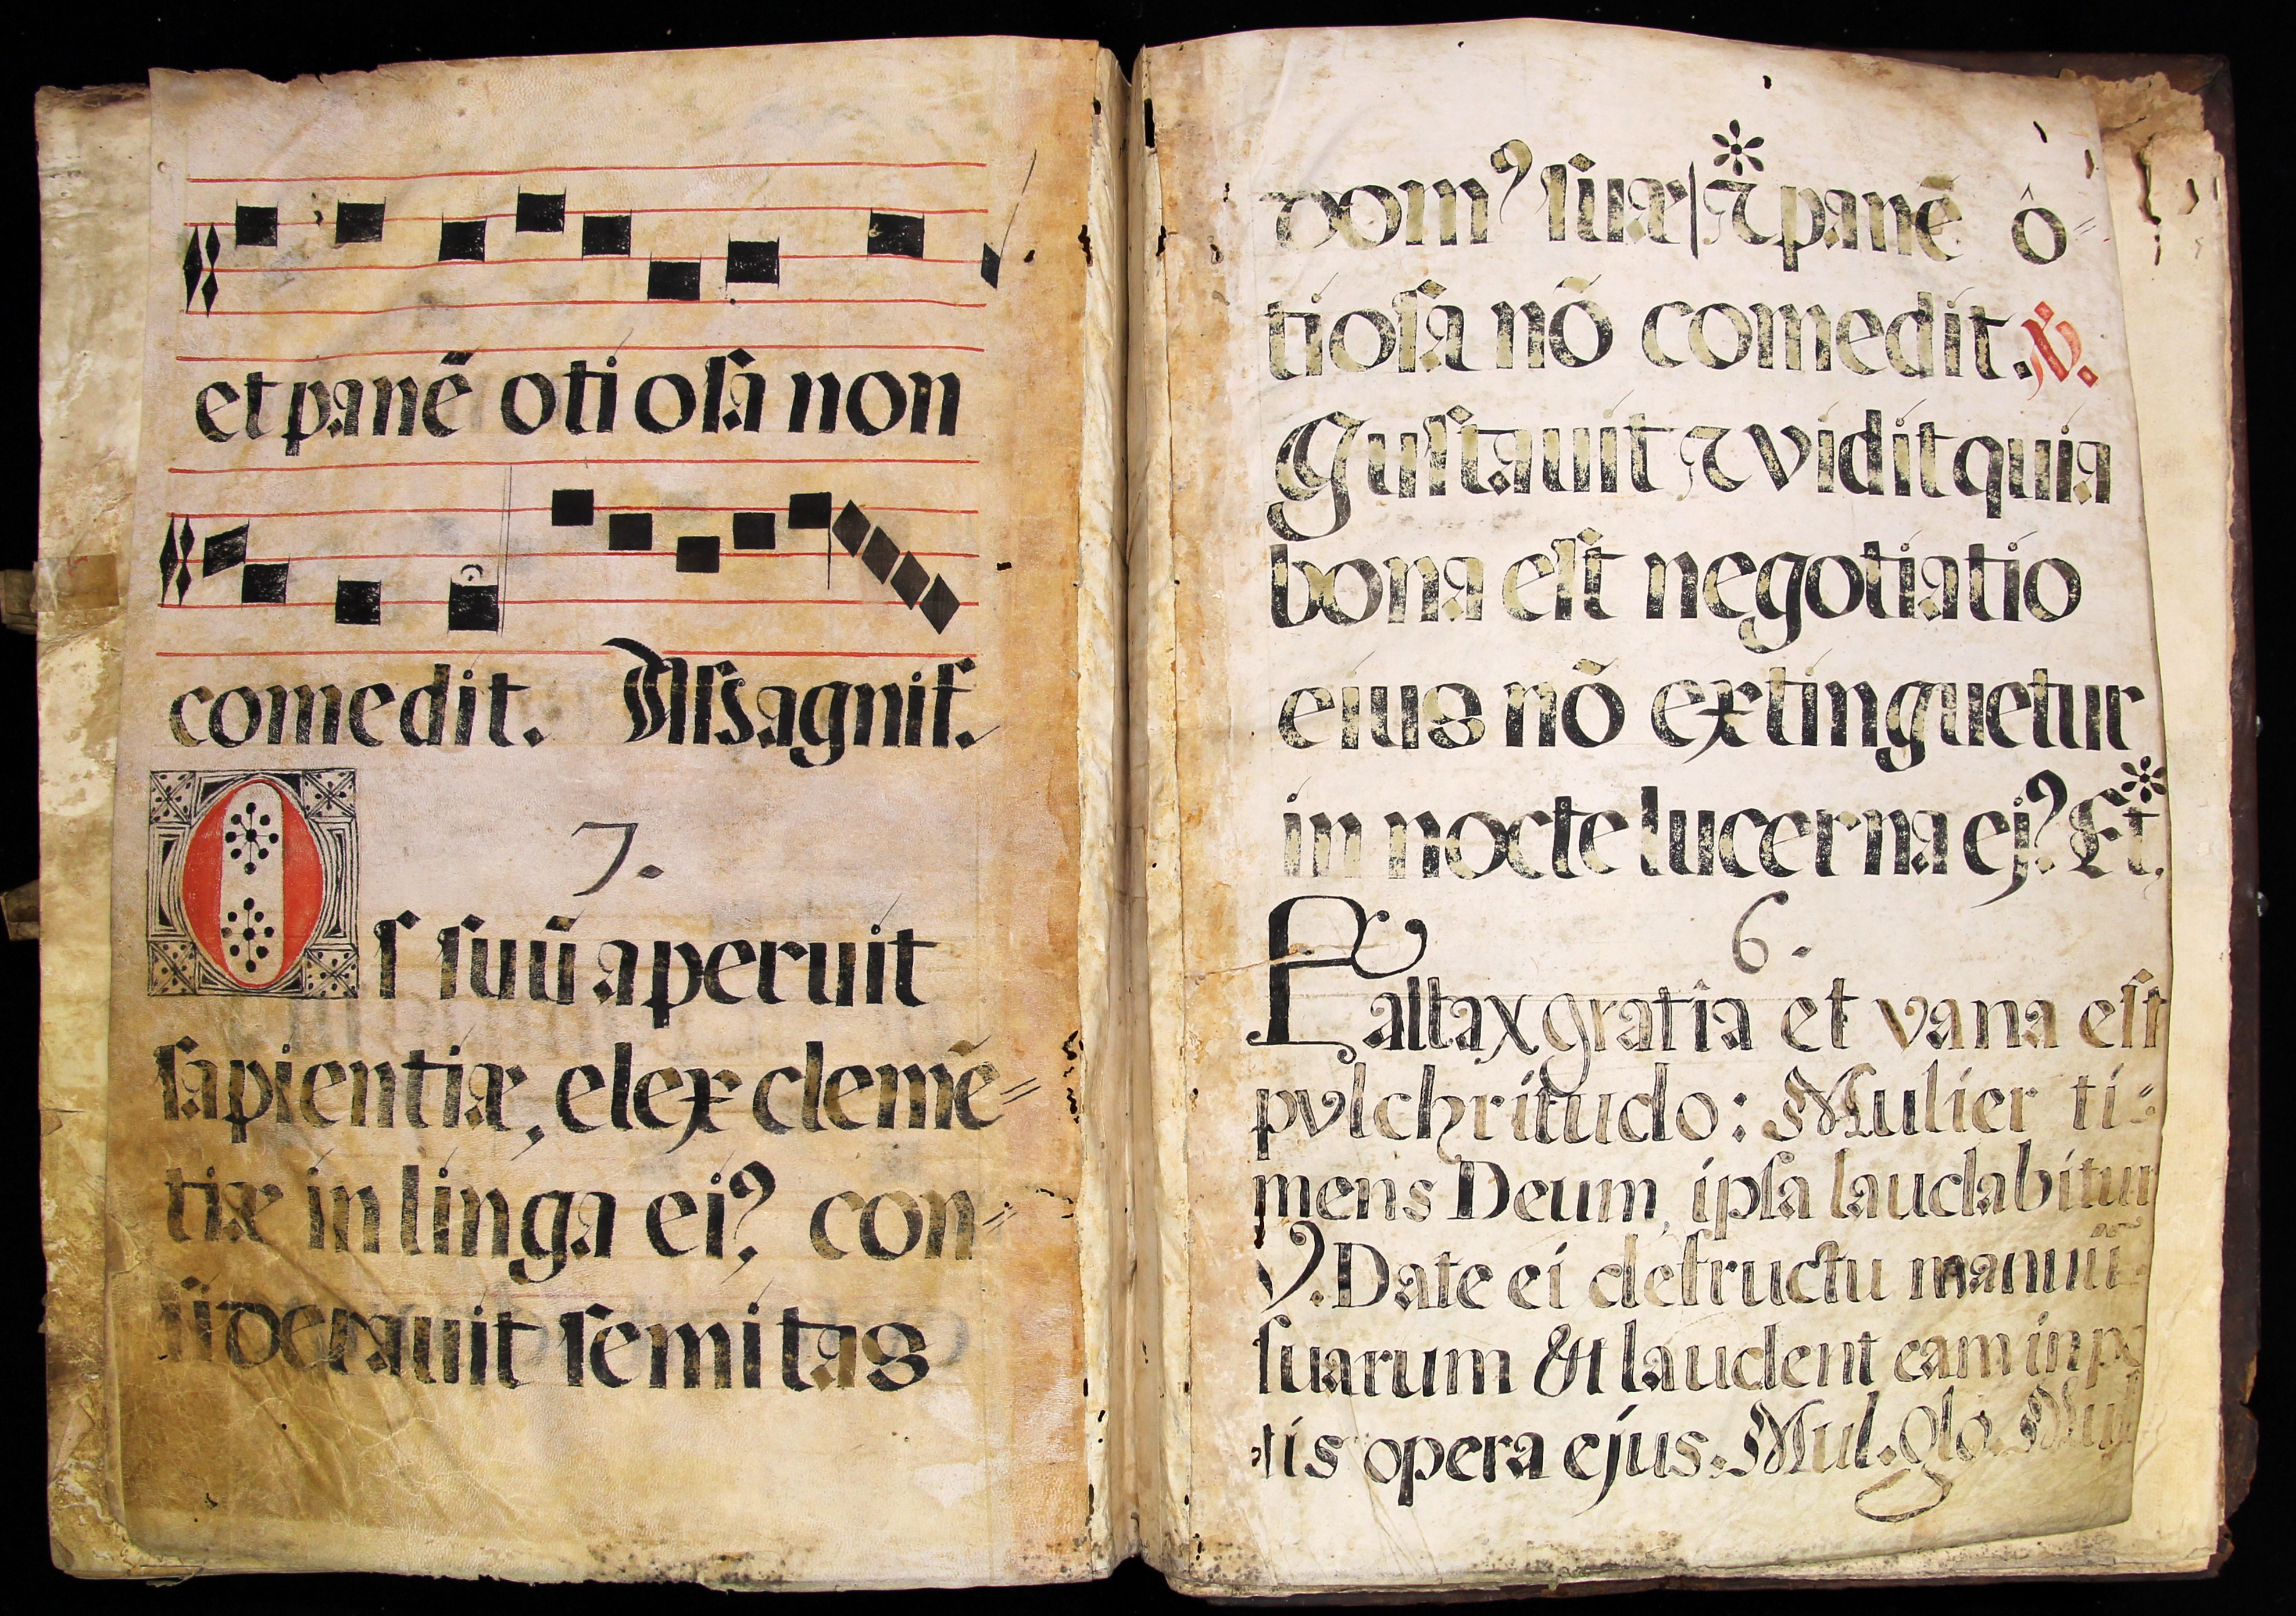 et panē oti oſa non
comedit. Aſsagnif.
7.
Os ſuū aperuit
ſapientiæ, et lex clemē=
tiæ in linga ei⁹ con=
ſiderauit ſemitas
dom⁹ ſuæ | ⁊ panē ô=
tioſa nō comedit. ℣.
Guſtauit ⁊ vidit quia
bona eſt negotiatio
eius nō extinguetur
in nocte lucerna ej⁹ * Et.
6.
Fallax gratia et vana eſt
pvlchritudo: Mulier ti=
mens Deum, ipſa laudabitur
℣. Date ei defructu manuū
ſuarum & laudent eam in po
tis opera ejus. Mul. Glo. Mul